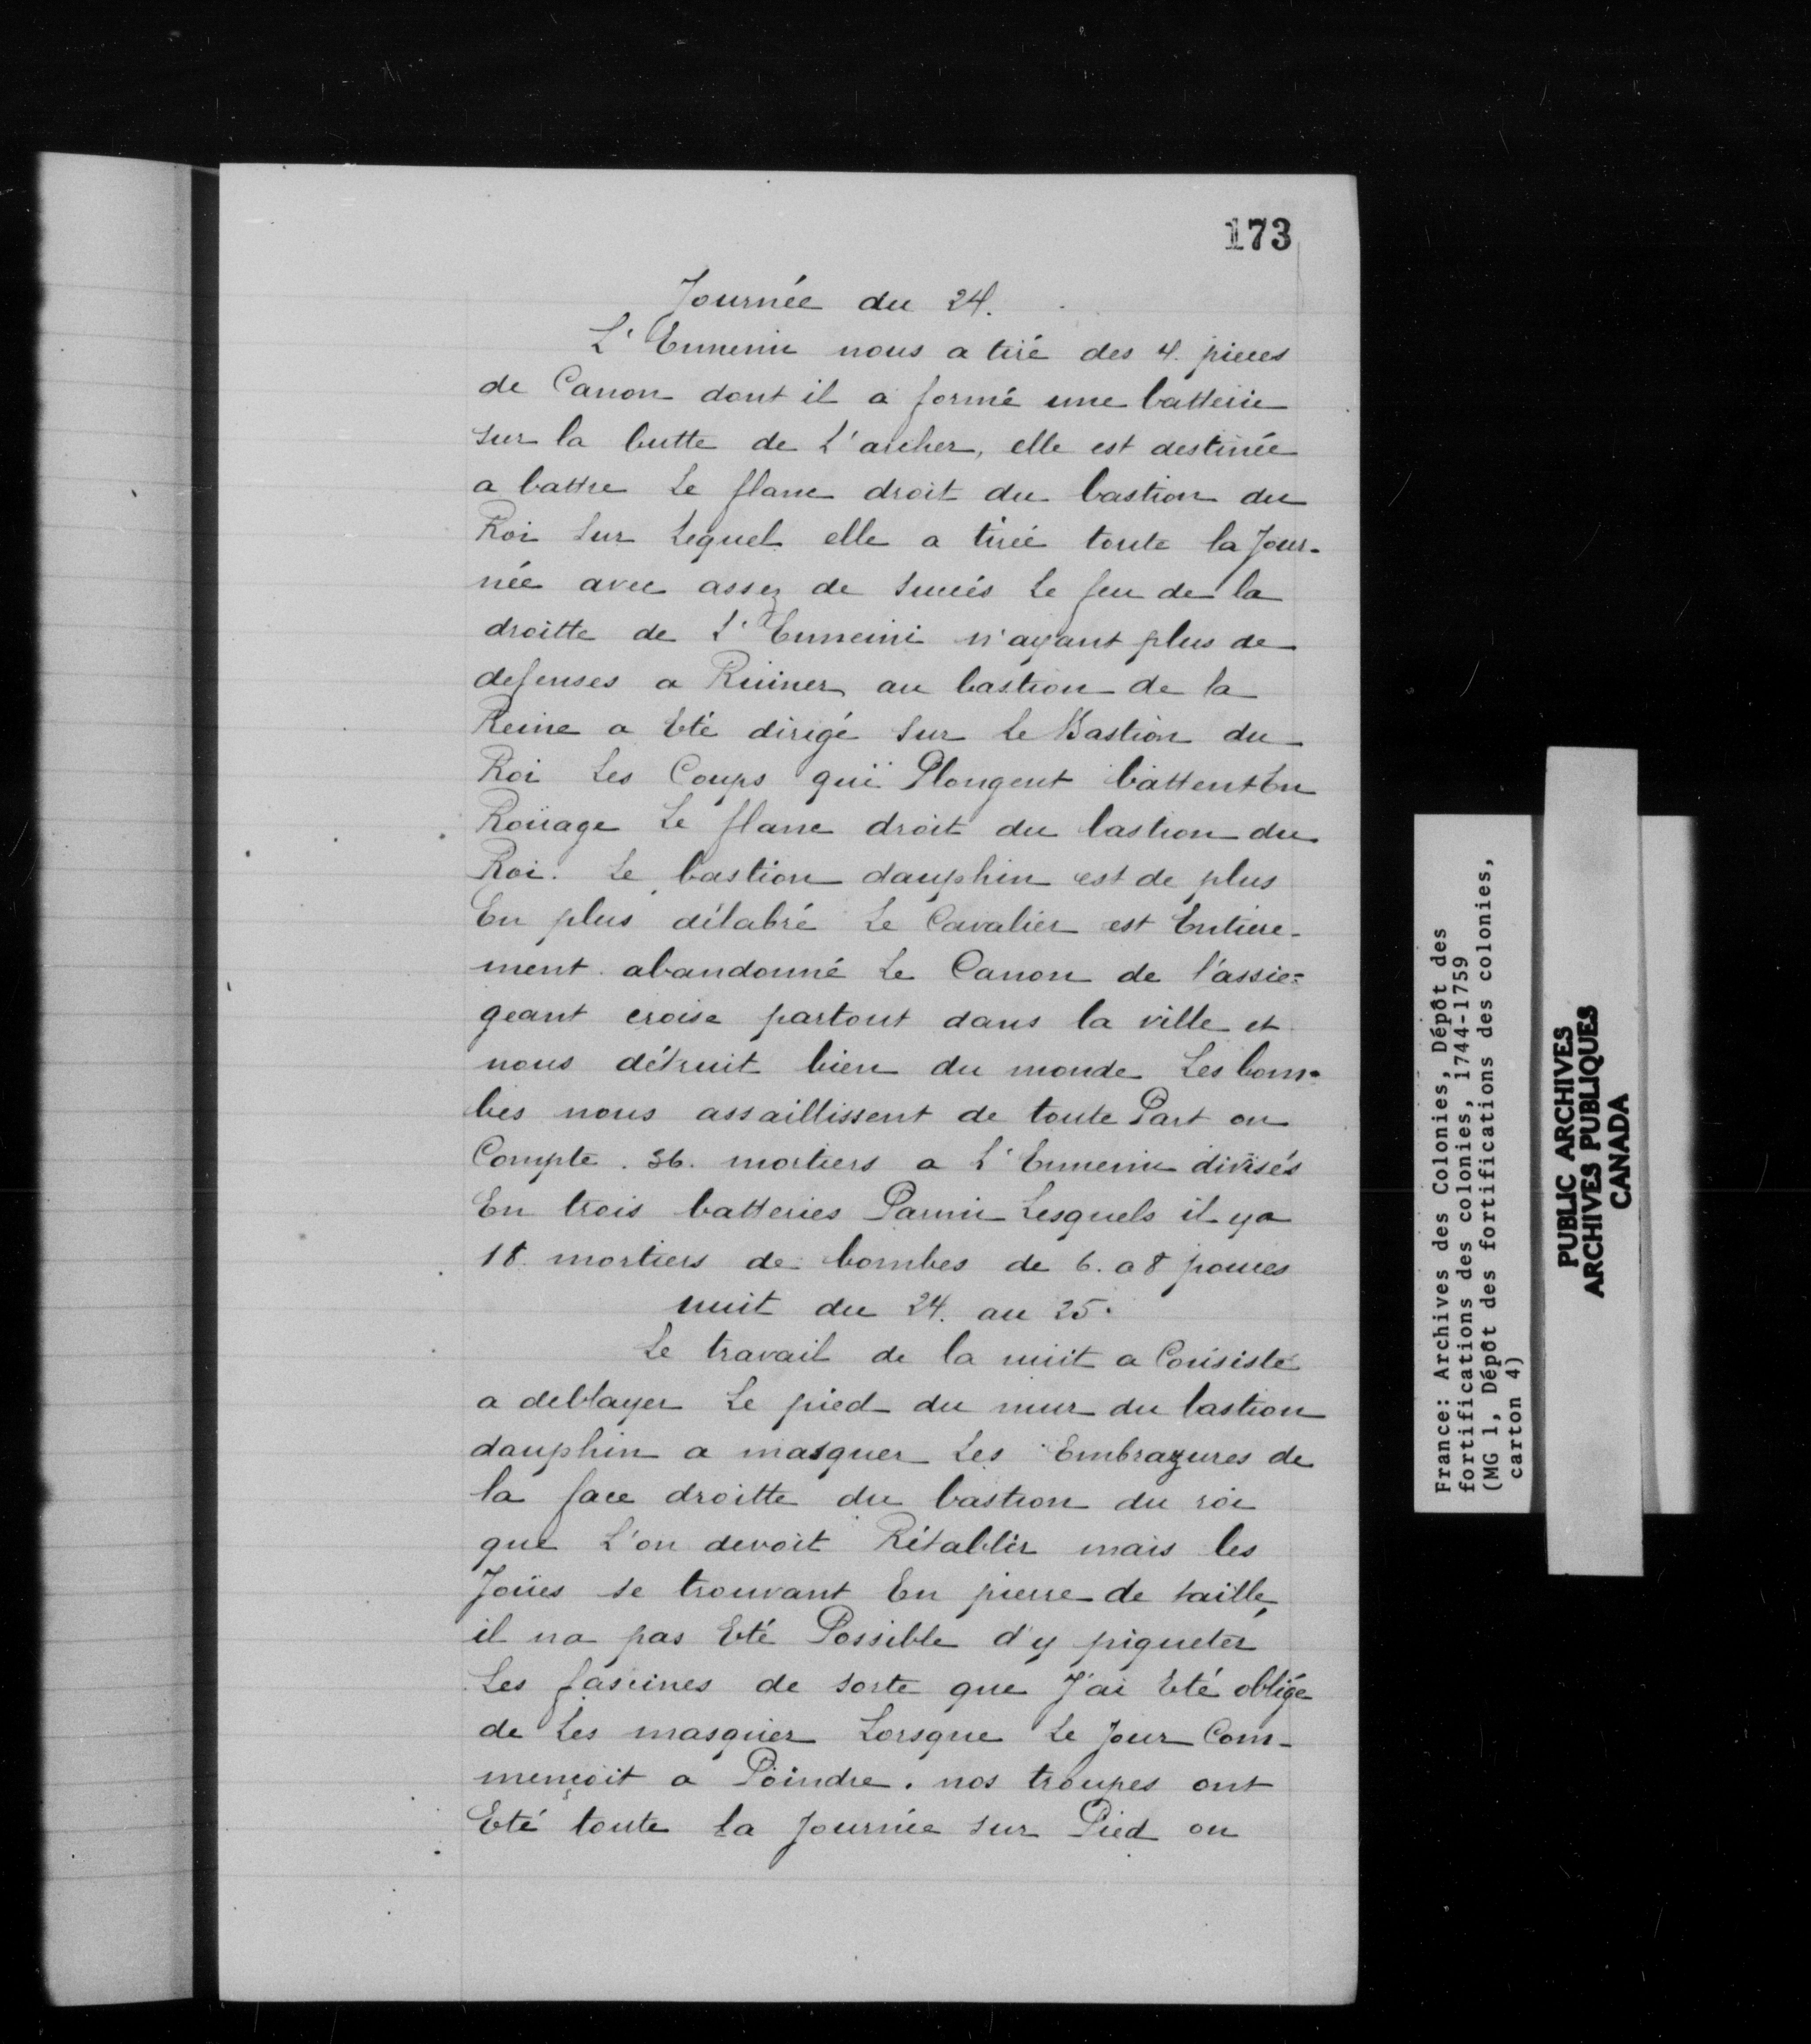 173
Journée du 24.
L'Ennemi nous a tiré des 4. pieces
de Canon dont il a formé une batterie
sur la butte de L'archer, elle est destinée
a battre Le flanc droit du bastion du
Roi sur Lequel elle a tirée toute la Jour-
née avec assez de succés Le feu de la
droitte de L'Ennemi n'ayant plus de
defenses a Ruiner au bastion de la
Reine a Eté dirigé sur Le Bastion du
Roi Les Coups qui Plongent battent En
Roüage Le flanc droit du bastion du
Roi. Le bastion dauphin est de plus
En plus délabré Le Cavalier est Entiere-
ment abandonné Le Canon de l'assie=
geant croise partout dans la ville et
nous détruit bien du monde Les bom=
bes nous assaillissent de toute Part on
Compte. 36. mortiers a L'Ennemi divisés
En trois batteries Parmi Lesquels il y a
18. mortiers de bombes de 6. a 8 pouces
nuit du 24. au 25.
Le travail de la nuit a Consisté
a deblayer Le pied du mur du bastion
dauphin a masquer Les Embrazures de
la face droitte du bastion du roi
que L'on devoit Rétablir mais les
Joües se trouvant En pierre de taille,
il na pas Eté Possible d'y piqueter
Les fascines de sorte que J'ai Eté obligé
de Les masquer Lorsque Le Jour Com-
mençoit a Poindre. nos troupes ont
Eté toute la Journée sur Pied on
France: Archives des Colonies, Dépôt des
fortifications des colonies, 1744-1759
(MG 1, Dépôt des fortifications des colonies,
carton 4)
PUBLIC ARCHIVES
ARCHIVES PUBLIQUES
CANADA